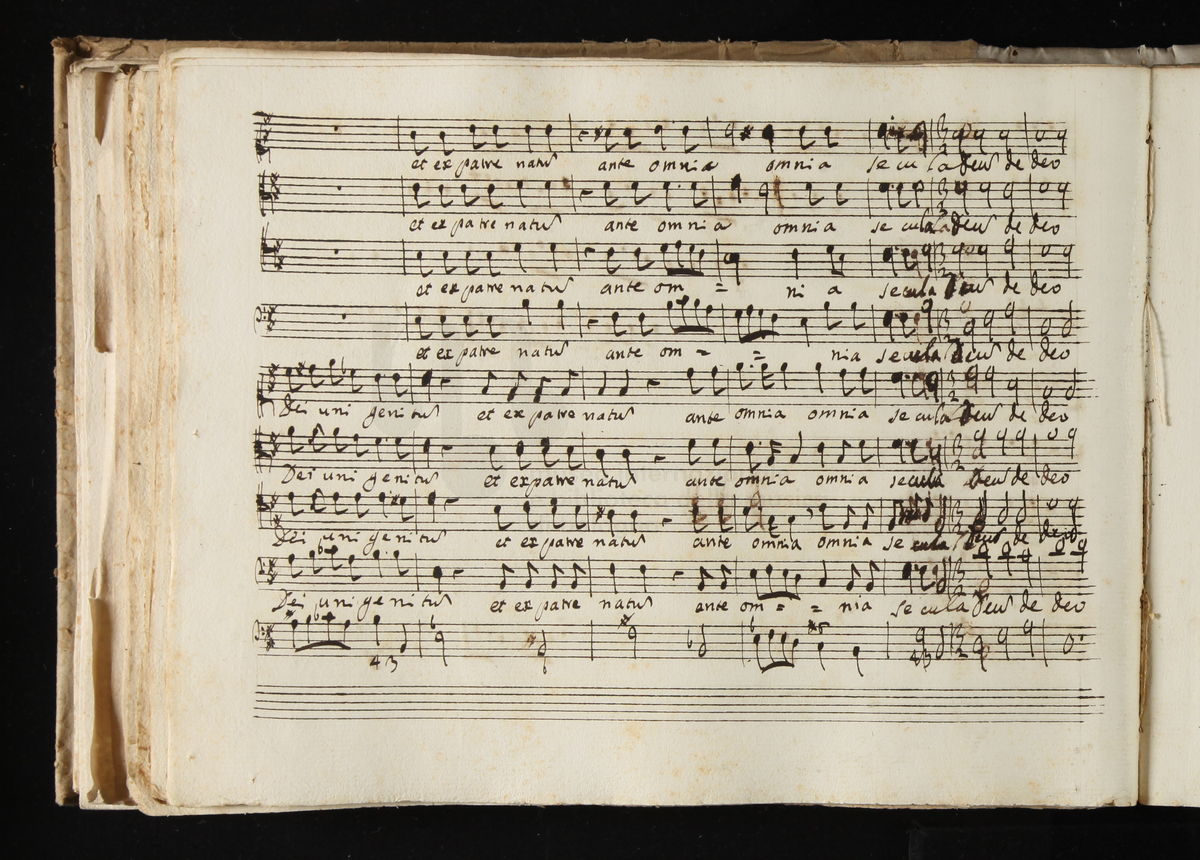 et ex patre natus ante omnia omnia secula Deus de deo
et ex patre natus ante omnia omnia secula Deus de deo
et ex patre natus ante om = ni a secula Deus de deo
et ex patre natus ante om = = nia secula Deus de deo
Dei uni genitus et ex patre natus ante omnia omnia secula Deus de deo
Dei uni genitus et ex patre natus ante omnia omnia secula Deus de deo
Dei uni genitus et ex patre natus ante omnia omnia secula Deus de deo
Dei uni genitus et ex patre natus ante om = = nia secula Deus de deo
43 43